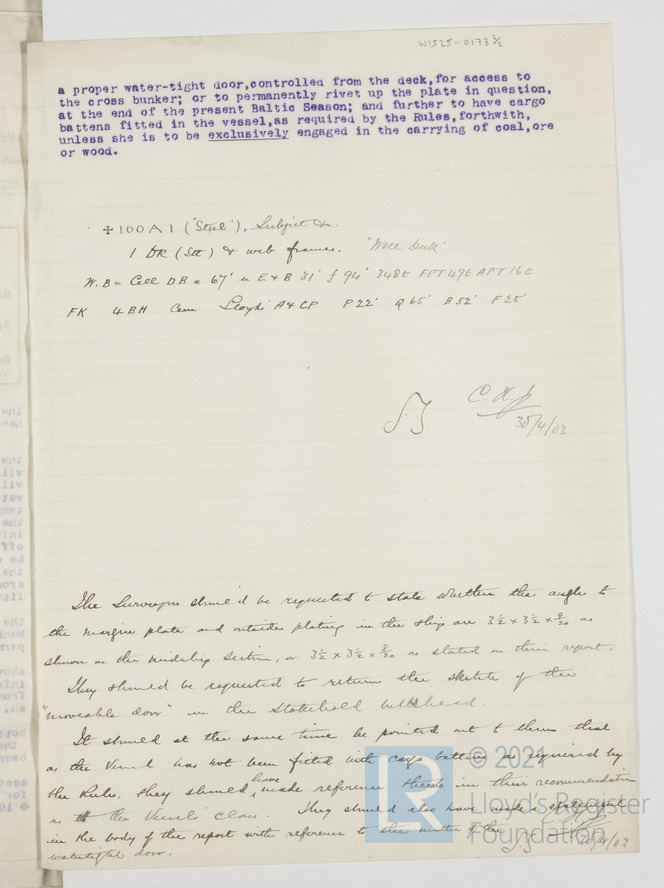 W1525-0173 ½
a proper water-tight door,controlled from the deck,for access to
the cross bunker; or to permanently rivet up the plate in question,
at the end of the present Baltic Season; and further to have cargo
battens fitted in the vessel,as required by the Rules,forthwith,
unless she is to be exclusively engaged in the carrying of coal,ore
or wood.
✠100A1 ("Steel"), Subject &c.
1 DR (Stl) & web frames. "Well Deck"
W.B= Cell DB a 67' u E&B 31' f 94' 348t FPT 49t APT 16t
FK 4BH Cem. Lloyd's A&CP P22' Q65' B52' F25'
30/4/03
The Surveyors should be requested to state whether the angles to
the margin plate and outside plating in the ship are 3½ x 3½ x 9/20 as
shewn on the midship section, or 3½ x 3½ x 8/20 as stated on their report.
They should be requested to return the sketch of the
"moveable door" in the Stokehold bulkhead.
It should at the same time be pointed out to them that
as the Vessel has not been fitted with cargo battens as required by
the Rules, they should have made reference thereto in their recommendation
as to the Vessel's class. They should also have made a statement
in the body of the report with reference to the matter of the
watertight door.
© 2021
LR
Lloyd's Register
Foundation